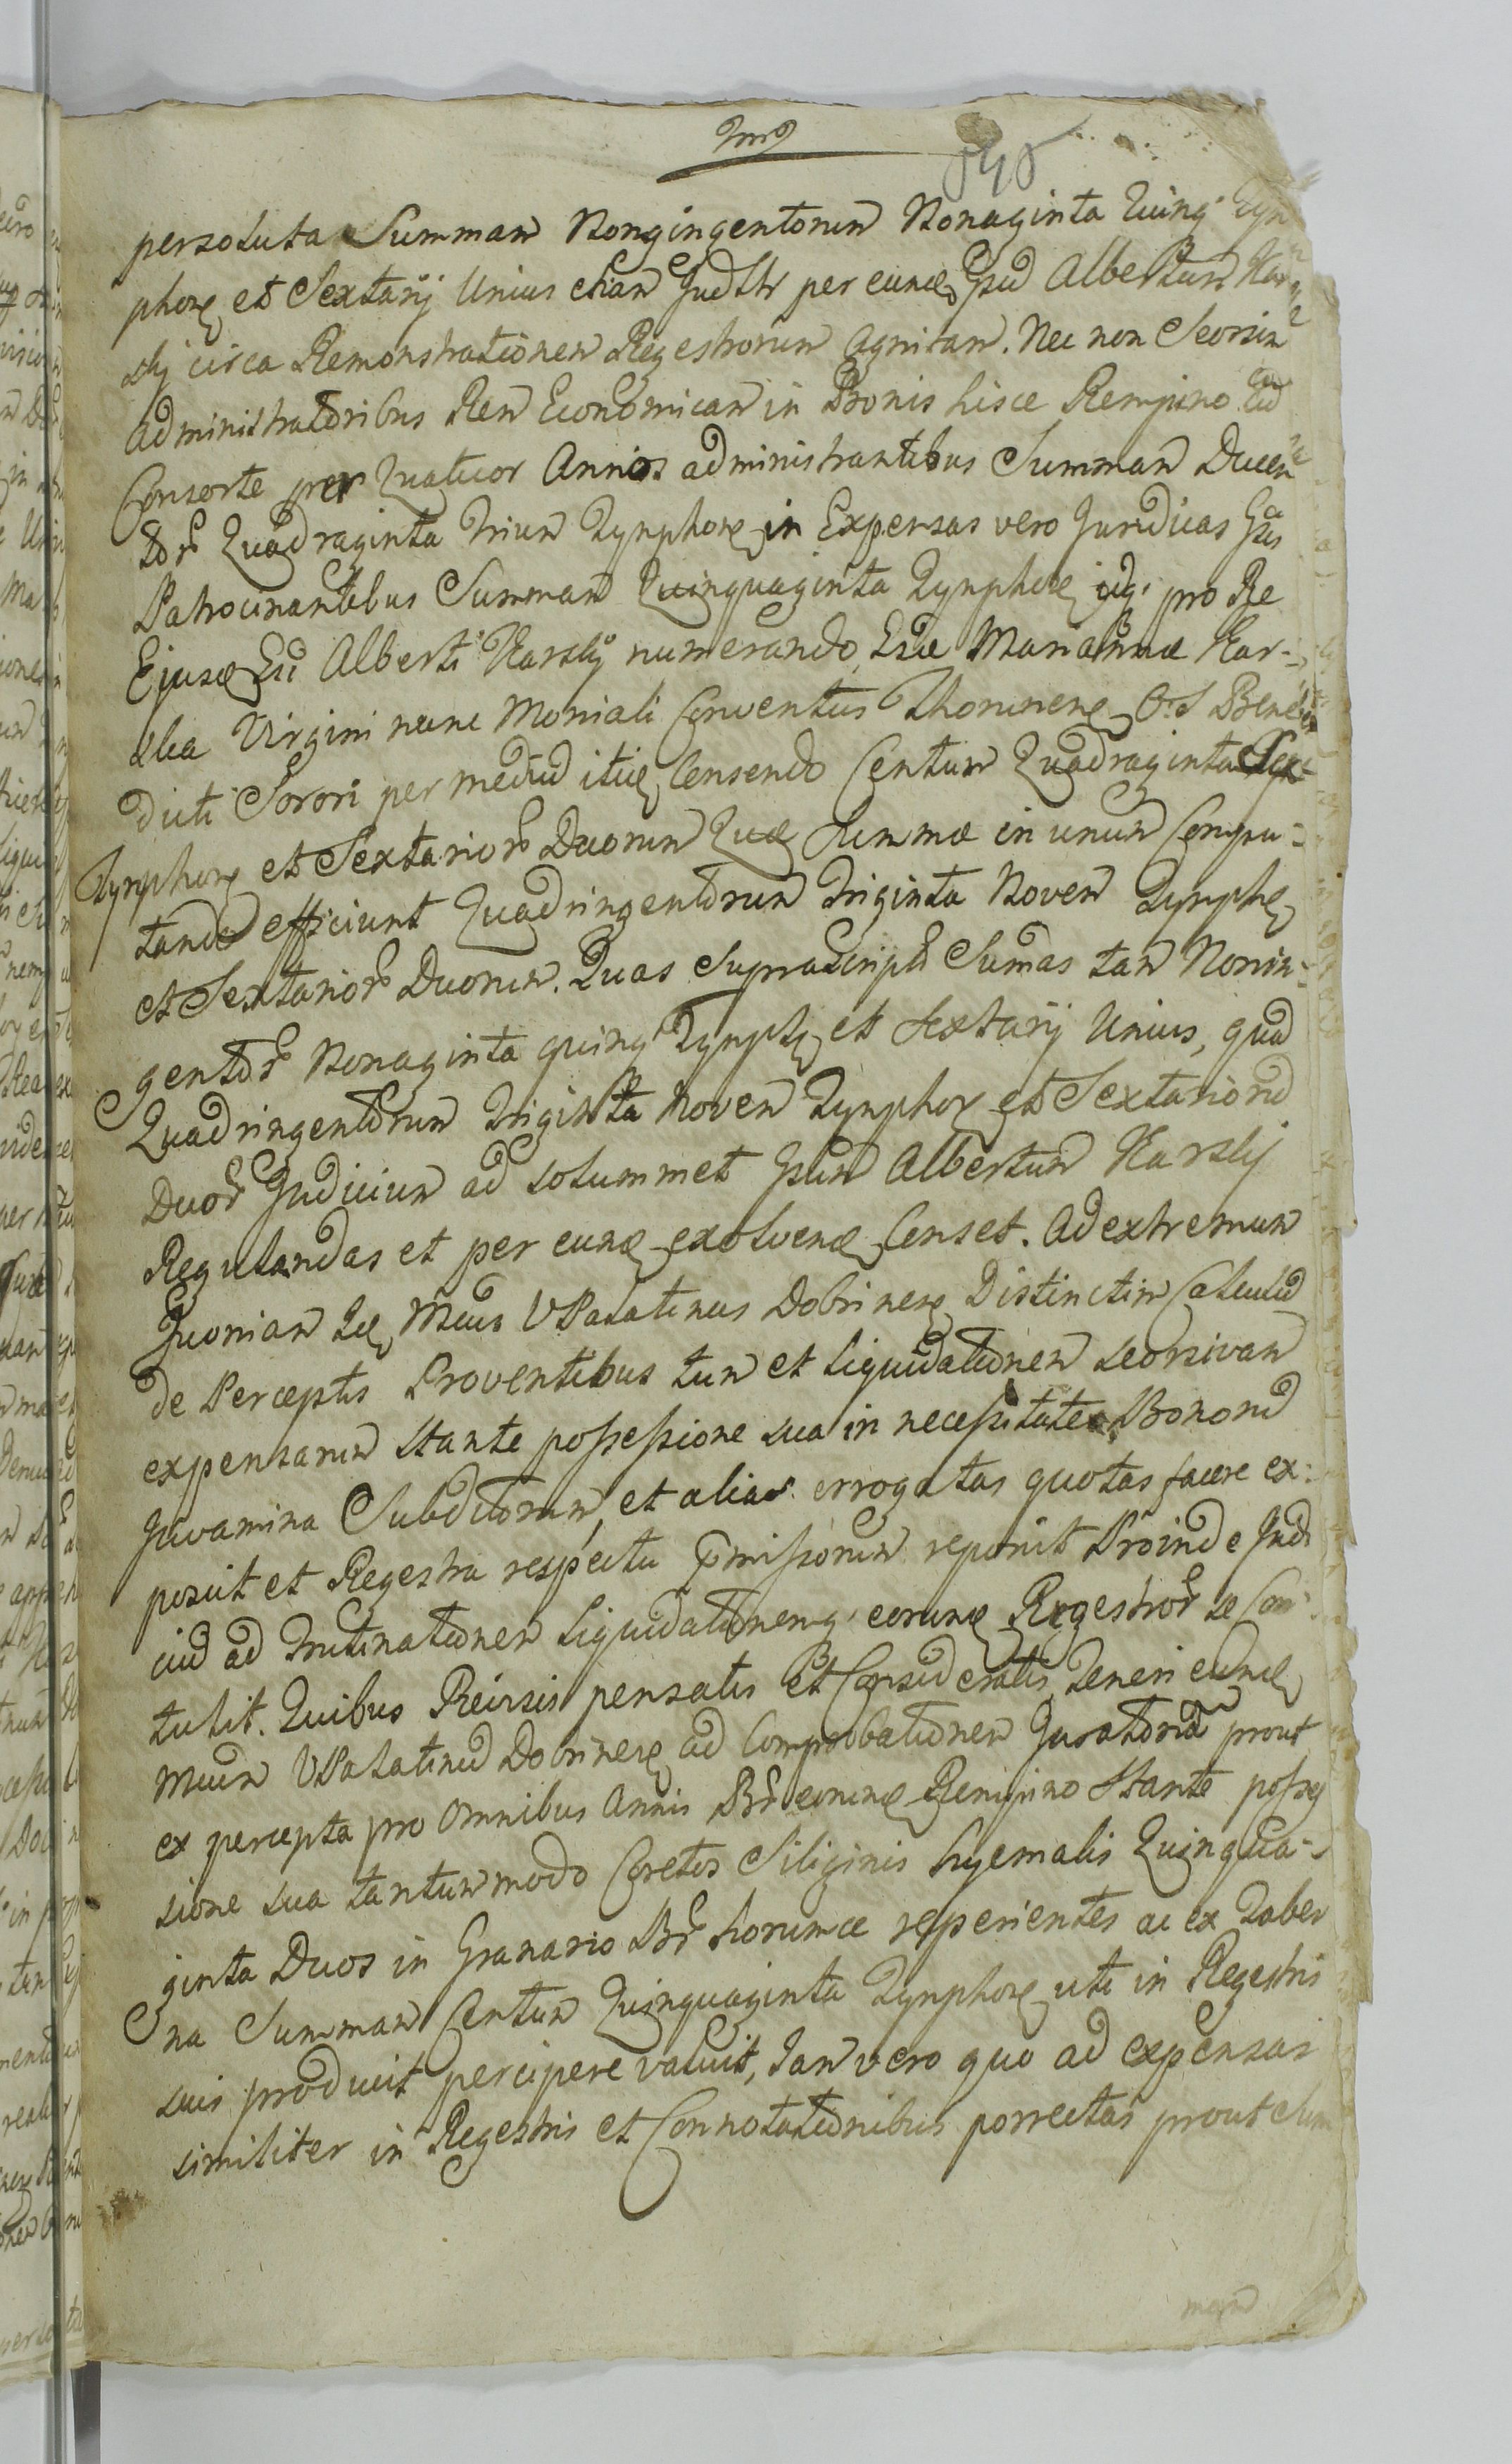 545
persoluta Summam Nongingentorum Nonaginta Quinq Tyn
phorum et Sextarij Unius etiam per eundem Gsum Albertum Kar
skij circa Remonstrationem Regestrorum agnitam. Nec non Seorsim
administratoribus Rem Economicam in Bonis hisce Rempino cum
Consorte per Quatuor Annos administrantibus Summam Ducen
tor Quadraginta Trium Tynphorum in Expensas vero Juridicas Gsis
Patrocinantibus Summam Quinquaginta Tynphorum idq pro Re
Ejusdem Gsi Alberti Karskij numerando Gsae Mariannae Kar-
skа Virgini nunc Moniali Conventus Thorunensis O. S. Bene
dicti Sorori per medium itidem Censendo Centum Quadraginta Sex
Tynphorum et Sextarior Duorum Quae Summae in unum Compu-
tando efficiunt Quadringentorum Triginta Novem Tynphorum
et Sextarior Duorum. Quas Suprascriptas Sumas tam Nonin-
gentor Nonaginta quinq Tynphorum et Sextarij Unius, quam
Quadringentorum Triginta Novem Tynphor et Sextariorum
Duor Judicium ad solummet Gsum Albertum Karskij
Regulandas et per eundem exolvendas Censet. Ad extremum
Quoniam Idem Mcus VPalatinus Dobrinensis Distinctim Calculum
de Perceptis Proventibus tum et liquidationem seorsivam
expensarum stante possessione sua in necessitates Bonorum
Juvamina Subditorum, et alias errogatas quotas facere ex-
posuit et Regestra respectu praemissorum reponit Proinde Judi
cium ad Trutinationem liquidationemq eorundem Regestror se Con
tulit. Quibus Reivsis pensatis et Consideratis Teneri eundem
Mcum VPalatinum Dobrinensem ad Comprobationem Juratoriam prout
ex percepta pro omnibus Annis Br eorundem Rempino stante posses
sione sua tantummodo Coretos Siliginis hyemalis Quinqua-
ginta Duos in Granario Br horumce reperientes ac ex Taber
na Summam Centum Quinquaginta Tynphorum uti in Regestris
suis produxit percipere valuit, Jam vero quo ad expensas
similiter in Regestris et Connotationibus porrectas prout Sum
mam